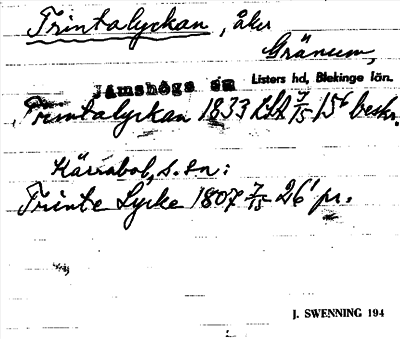 Trintalyckan, åker
Gränum,
Jämshögs sn Listers hd, Blekinge län.
Trintalyckan 1833 LSA 7/15 15 beskr.
s. sn:
Trinte Lycke 1807 7/15 26 pr.
J. SWENNING 194